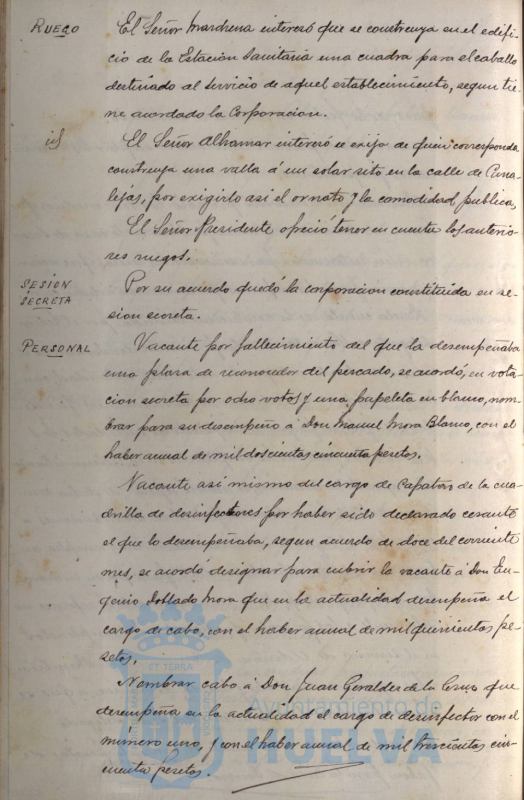 RUEGO
El Señor Marchena interesó que se construya en el edifi-
cio de la Estación Sanitaria una cuadra para el caballo
destinado al servicio de aquel establecimiento, segun tie-
ne acordado la Corporacion.
id
El Señor Alhamar interesó se exija de quien corresponda
construya una valla á un solar sito en la calle de Cana-
lejas, por exigirlo asi el ornato y la comodidad publica,
El Señor Presidente ofreció tener en cuenta los anterio-
res ruegos.
SESION
SECRETA
Por su acuerdo quedó la corporacion constituida en se-
sion secreta.
PERSONAL
Vacante por fallecimiento del que la desempeñaba
una plaza de reconocedor del pescado, se acordó, en vota-
cion secreta por ocho votos y una papeleta en blanco, nom-
brar para su desempeño á Don Manuel Mora Blanco, con el
haber anual de mil doscientas cincuenta pesetas.
Vacante asi mismo del cargo de Capataz de la cua-
drilla de desinfectores por haber sido declarado cesante
el que lo desempeñaba, segun acuerdo de doce del corriente
mes, se acordó designar para cubrir la vacante á Don Eu-
genio Doblado Mora que en la actualidad desempeña el
cargo de cabo, con el haber anual de mil quinientas pe-
setas.
Nombrar cabo á Don Juan Geraldes de la Cruz que
desempeña en la actualidad el cargo de desinfector con el
número uno, y con el haber anual de mil trescientas cin-
cuenta pesetas.
ET TERRA
Ayuntamiento de
HUELVA